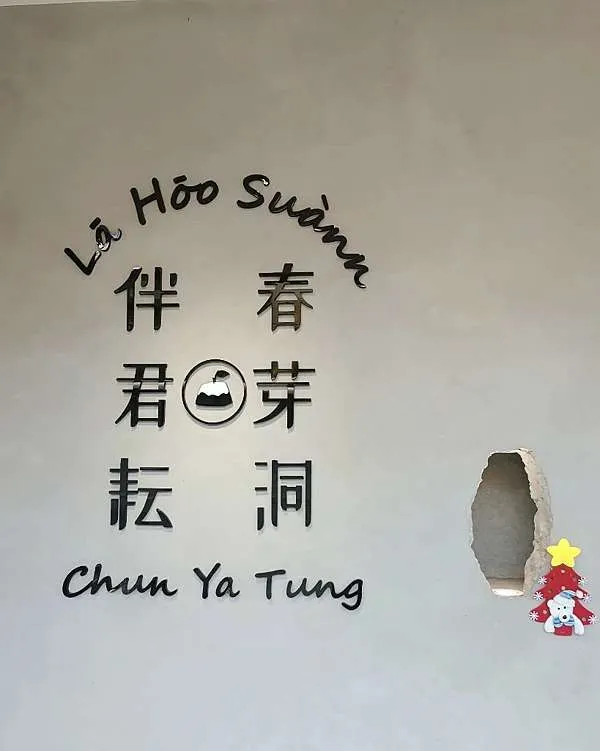 Lá Hóo Suànn
春芽洞
伴君耘
Chun Ya Tung